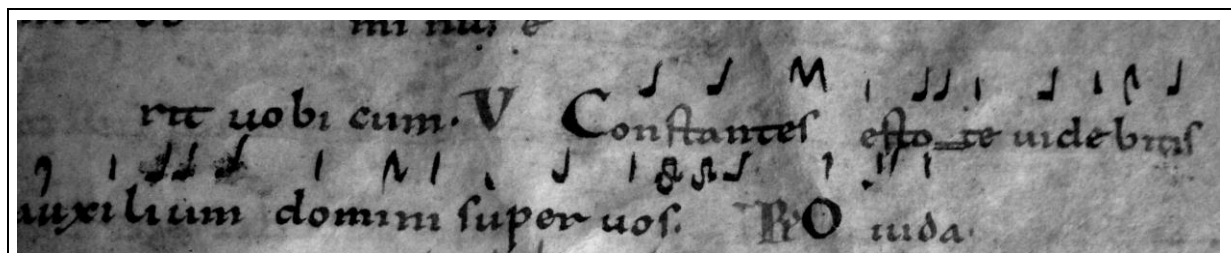 mi nus e
rit uobi cum. V Constantes esto te uidebitis
auxilium domini super uos. R O iuda.